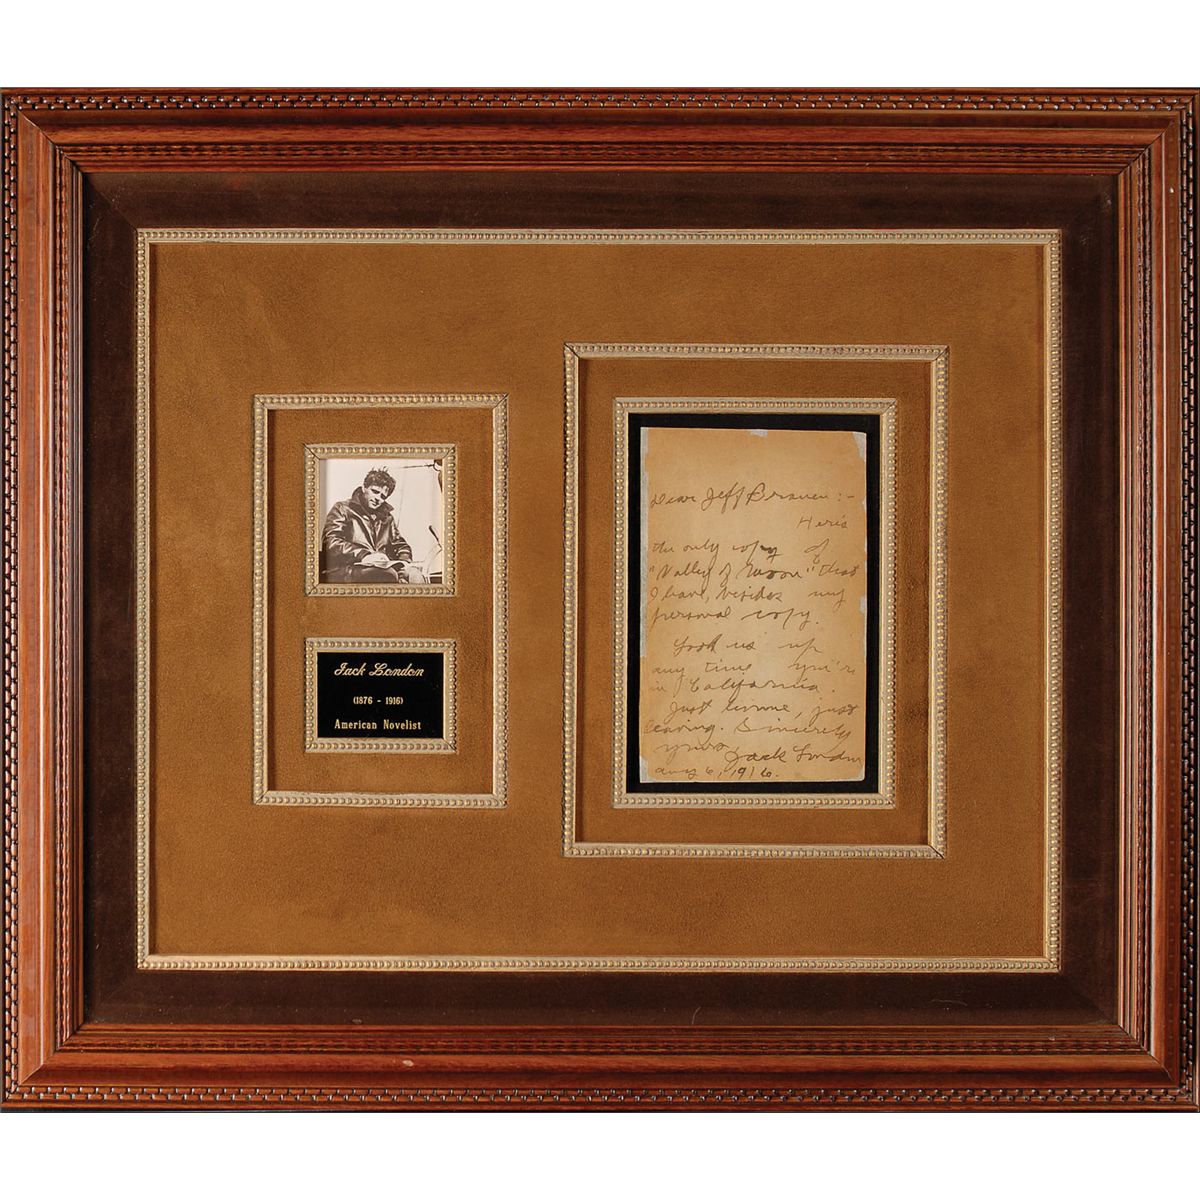 Jack London
(1876 - 1916)
American Novelist
Dear Jeff :-
Here's
the only copy of
"Valley of Moon" that
I have, besides my
personal copy.
Look us up
any time you're
in California.
Just home, just
leaving. Sincerely
yours,
Jack London
Aug 6, 1916.